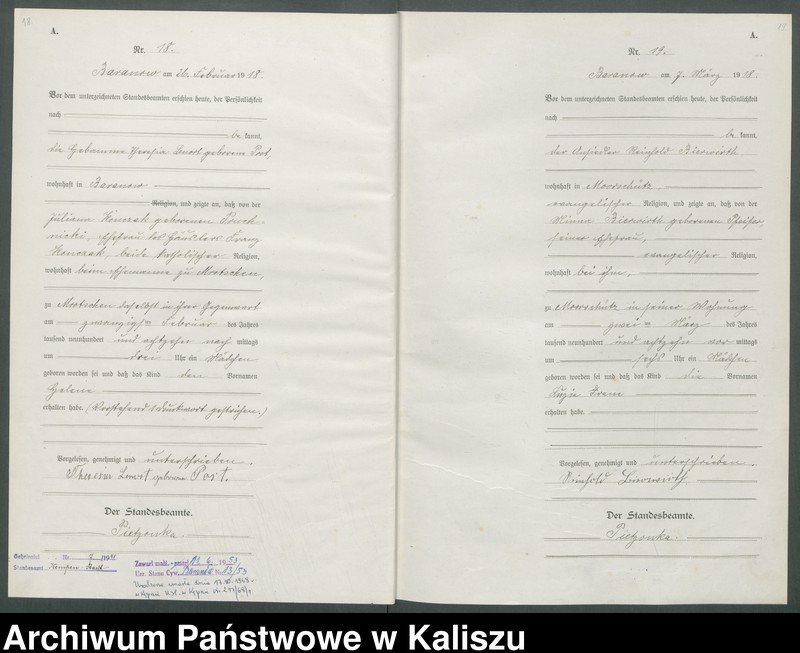 18
A.
Nr. 18.
Baranow am 26. Februar 1918.
Vor dem unterzeichneten Standesbeamten erschien heute, der Persönlichkeit
nach
be kannt,
die Hebamme Theresia Lenort geborene Post,
wohnhaft in Baranow
Religion, und zeigte an, daß von der
Juliana Konczak geborenen
Ehefrau des Häuslers Franz
Konczak, beide katholischer Religion,
wohnhaft beim Ehemanne zu Mrotschen,
zu Mrotschen daselbst in ihrer Gegenwart
am zwanzigsten Februar des Jahres
tausend neunhundert und achtzehn nach mittags
um drei Uhr ein Mädchen
geboren worden sei und daß das Kind den Vornamen
Helene
erhalten habe. (Vorstehend 1 Druckwort gestrichen.)
Vorgelesen, genehmigt und unterschrieben.
Theresia Lenort geborene Post.
Der Standesbeamte.
Pietzonka.
Geheiratet Nr. 7/1941
Standesamt Kempen-
Zawarł małż. 6. 1953
Urz. Stanu Cyw. Baranów Nr 13/53
19
A.
Nr. 19.
Baranow am 7. März 1918.
Vor dem unterzeichneten Standesbeamten erschien heute, der Persönlichkeit
nach
be kannt,
der Ansiedler Reinhold Bierwirth,
wohnhaft in Moorschütz,
evangelischer Religion, und zeigte an, daß von der
Minna Bierwirth geborenen Pfeiffer,
seiner Ehefrau,
evangelischer Religion,
wohnhaft bei ihm,
zu Moorschütz in seiner Wohnung
am zwei ten März des Jahres
tausend neunhundert und achtzehn vor mittags
um sechs Uhr ein Mädchen
geboren worden sei und daß das Kind die Vornamen
Luzie Irene
erhalten habe.
Vorgelesen, genehmigt und unterschrieben.
Reinhold Bierwirth
Der Standesbeamte.
Pietzonka.
Archiwum Państwowe w Kaliszu